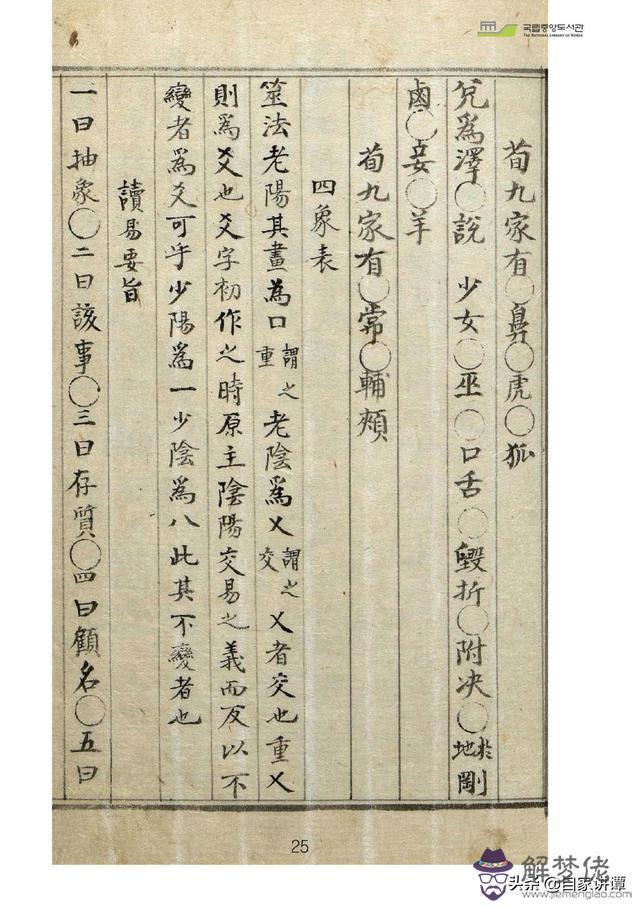 국립중앙도서관
THE NATIONAL LIBRARY OF KOREA
荀九家有○鼻○虎○狐
兊爲澤○說 少女○巫○口舌○毀折○附决○於地剛
鹵○妾○羊
荀九家有○常○輔頰
四象表
筮法老陽其畫爲口謂之重老陰爲乂謂之交乂者交也重乂
則爲爻也爻字初作之時原主陰陽交易之義而反以不
變者爲爻可乎少陽爲一少陰爲八此其不變者也
讀易要旨
一曰抽象○二曰該事○三曰存質○四曰顧名○五曰
25
解梦佬
头条 @自家讲谭
www.jiemenglao.com